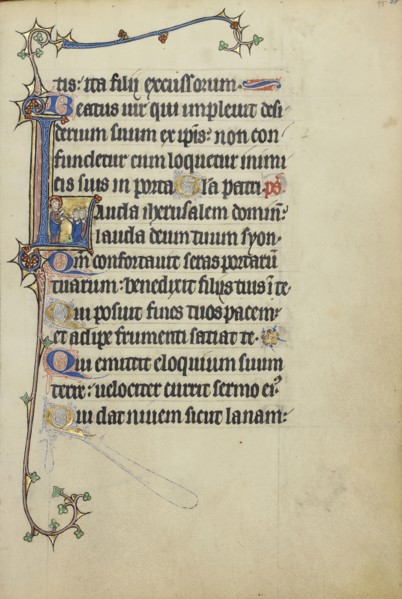 tis: ita filij excussorum.
Beatus uir qui impleuit desi
derium suum ex ip̄is: non con
fundetur cum loquetur inimi
cis suis in porta. Gl̄a patri. p̄s.
Lauda iherusalem domin̄:
lauda deum tuum syon.
Qm̄ confortauit seras portarū
tuarum: benedixit filijs tuis ī te.
Qui posuit fines tuos pacem:
et adipe frumenti satiat te.
Qui emittit eloquium suum
terre: uelociter currit sermo ei9.
Qui dat niuem sicut lanam: